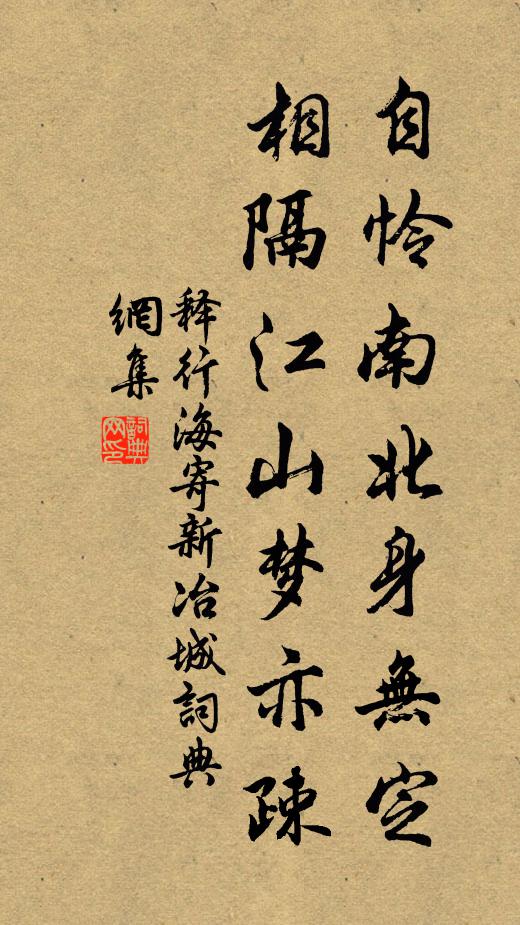 自怜南北身無定
相隔江山梦亦疎
释行海寄新冶城詞典
網集
詞典
网印